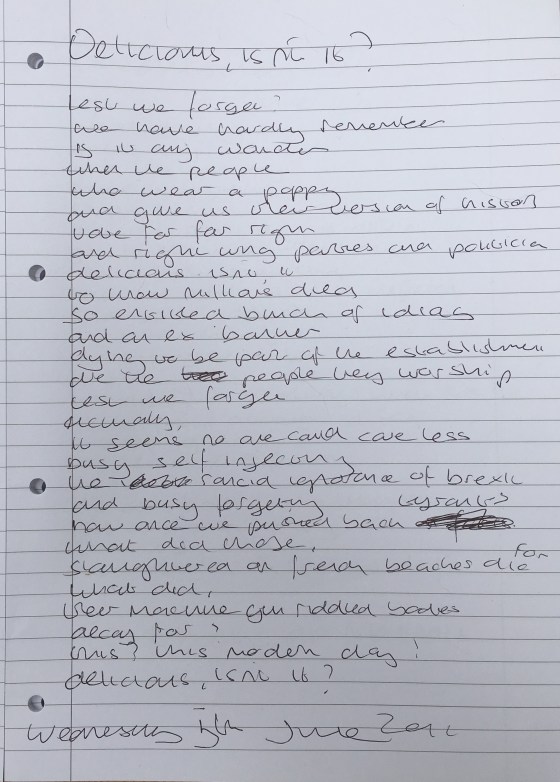 Delicious, isn't it?
lest we forget?
we have hardly remember
is it any wonder
when the people
who wear a poppy
and give us their version of history
vote for far right
and right wing parties and politicia
delicious isn't it
to know millions died
so entitled bunch of idiots
and an ex banker
dying to be part of the establishment
are the people they worship
lest we forget
actually,
it seems no one could care less
busy self injecting
the rancid ignorance of brexit
and busy forgetting
how once we pushed back tyrants
what did those,
slaughtered on french beaches die for
what did,
their machine gun riddled bodies
decay for?
this? this modern day!
delicious, isn't it?
Wednesday 5th June